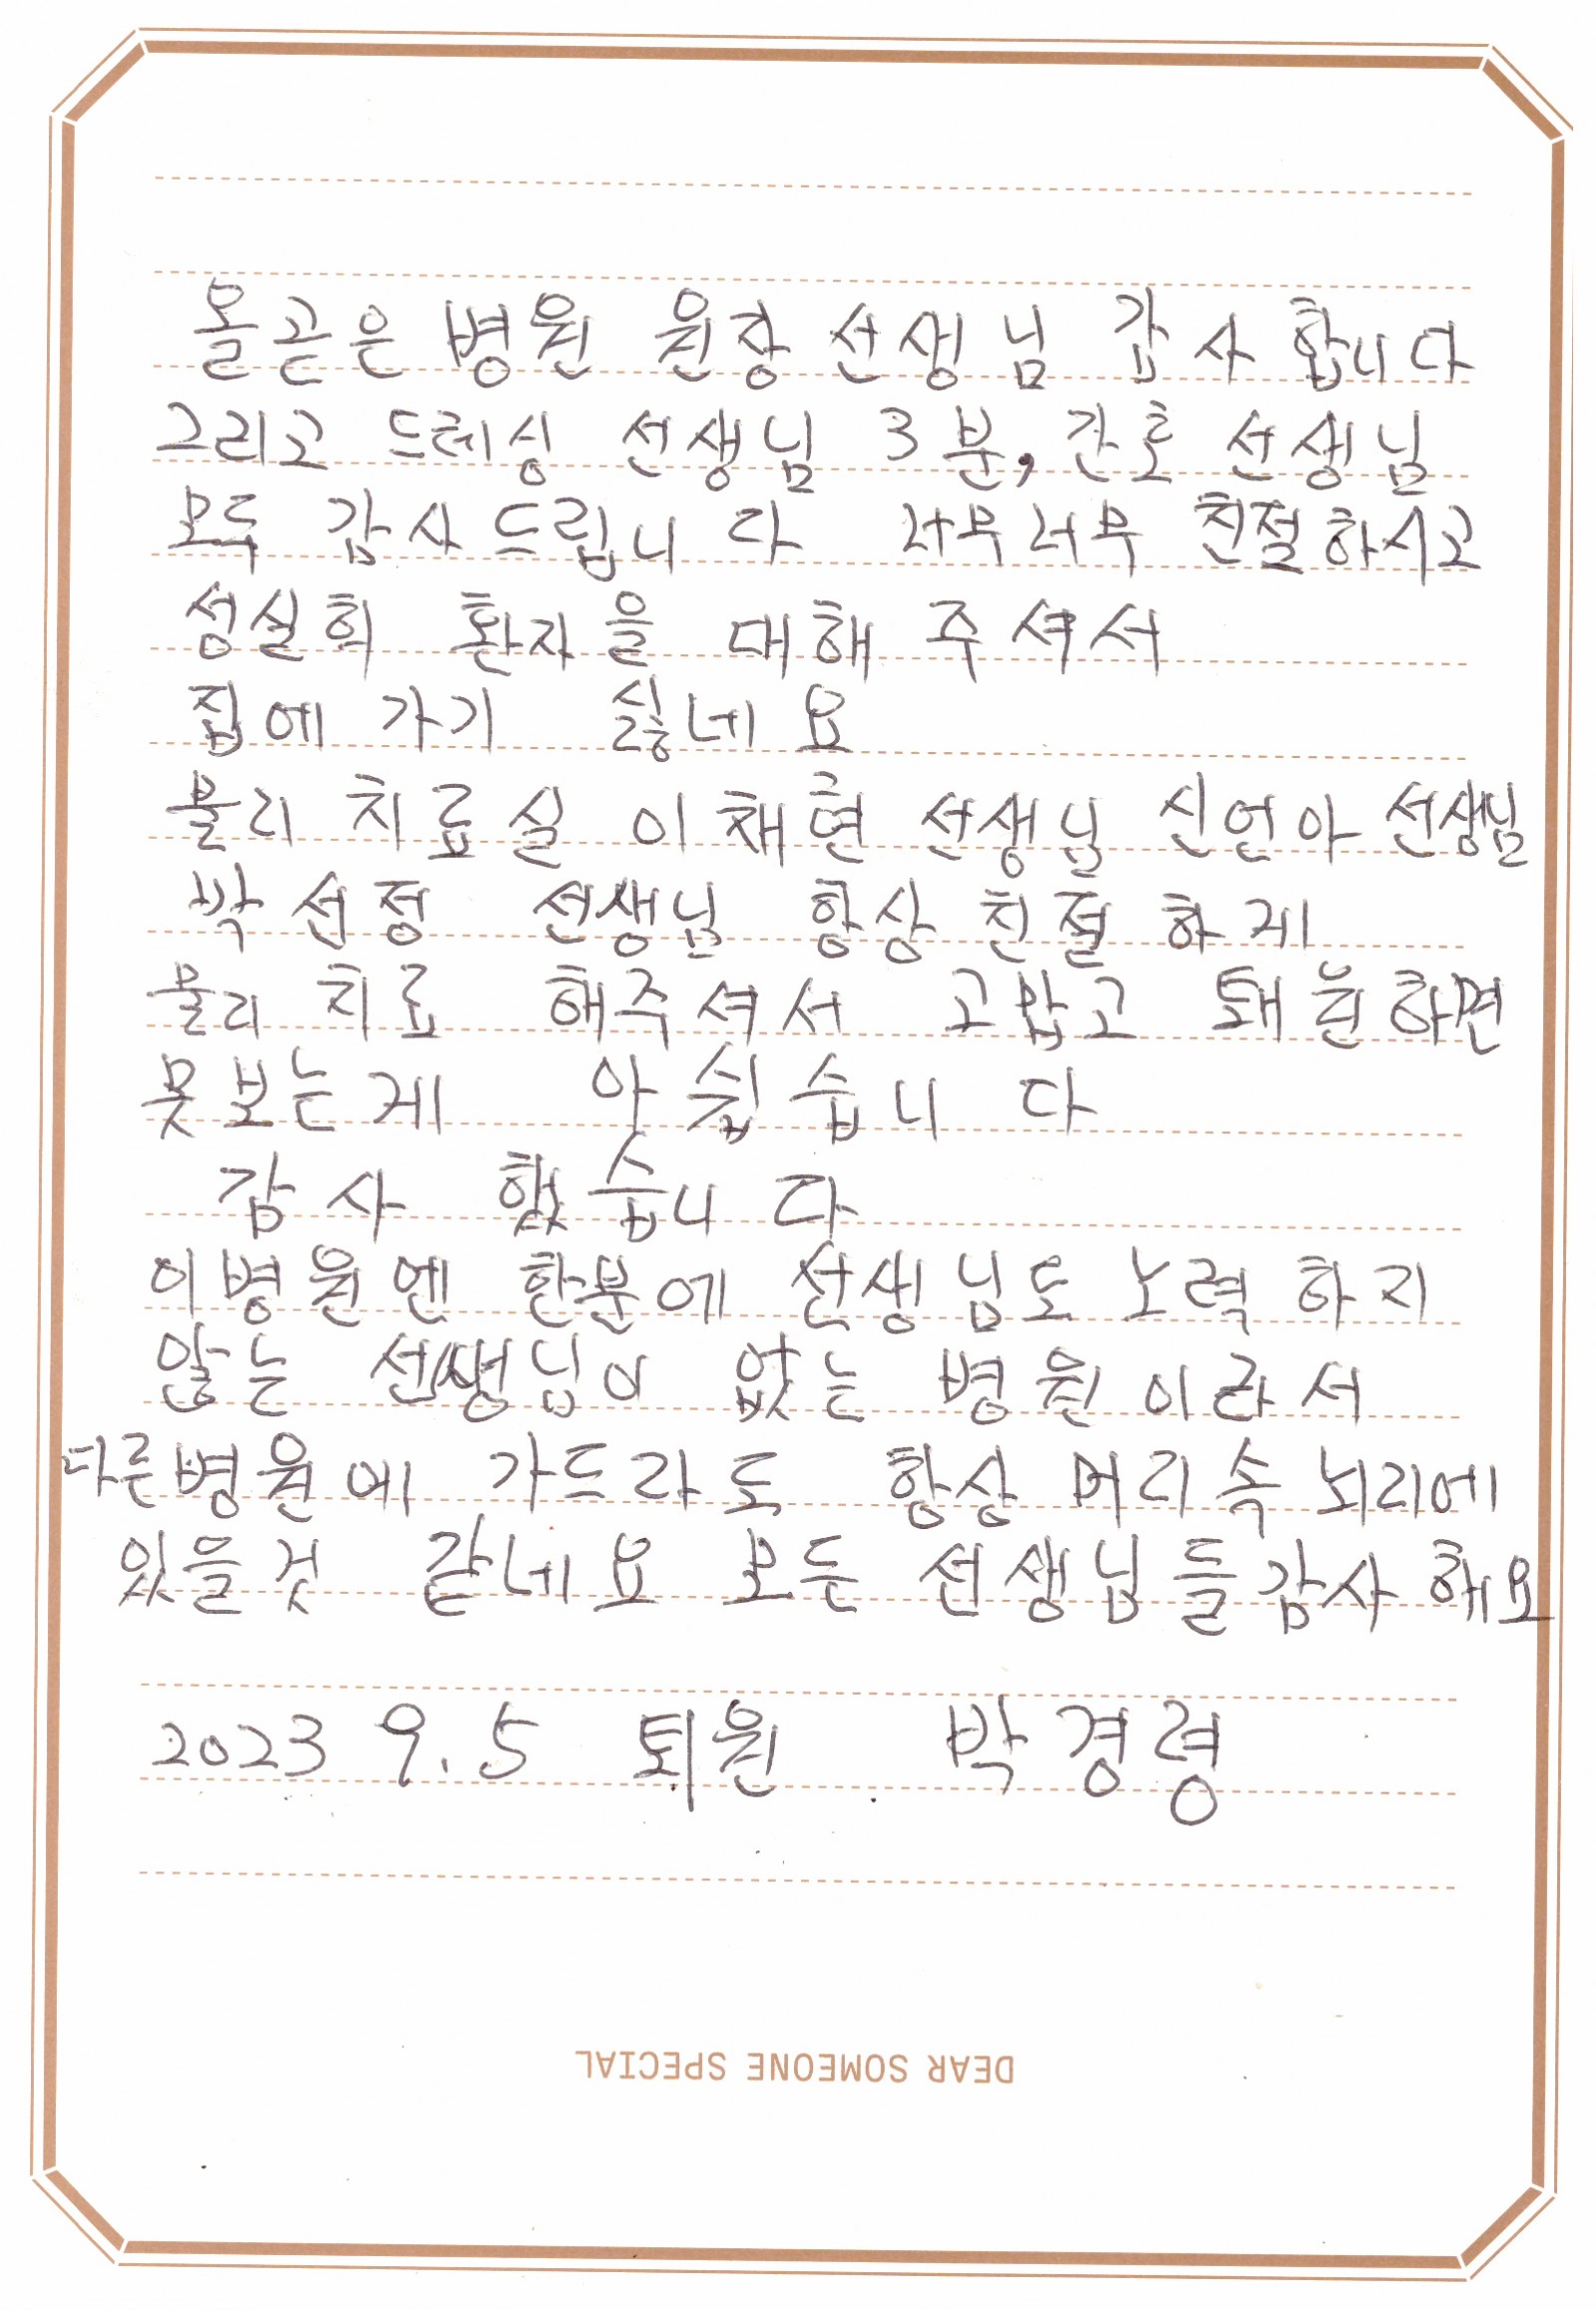 올곧은 병원 원장 선생님 감사 합니다
그리고 드레싱 선생님 3분, 간호 선생님
모두 감사드립니다 너무너무 친절하시고
성실희 환자을 대해 주셔서
집에 가기 싫네요
물리 치료실 이채현 선생님 신언아 선생님
박선정 선생님 항상 친절 하게
물리 치료 해주셔서 고맙고 퇘원하면
못보는게 아쉽습니다
감사 했습니다
이병원엔 한분에 선생님도 노력 하지
않는 선생님이 없는 병원이라서
다른병원에 가드라도 항상 머리속 뇌리에
있을것 같네요 모든 선생님들 감사해요
2023 9.5 퇴원 박경령
DEAR SOMEONE SPECIAL